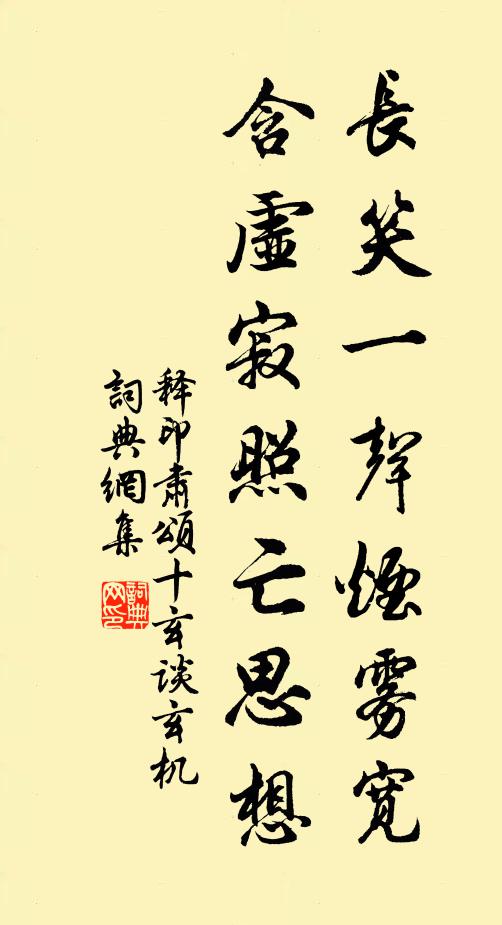 長笑一聲煙霧寬
含虛寂照亡思想
释印肃頌十玄谈玄机
詞典網集
詞典
网印